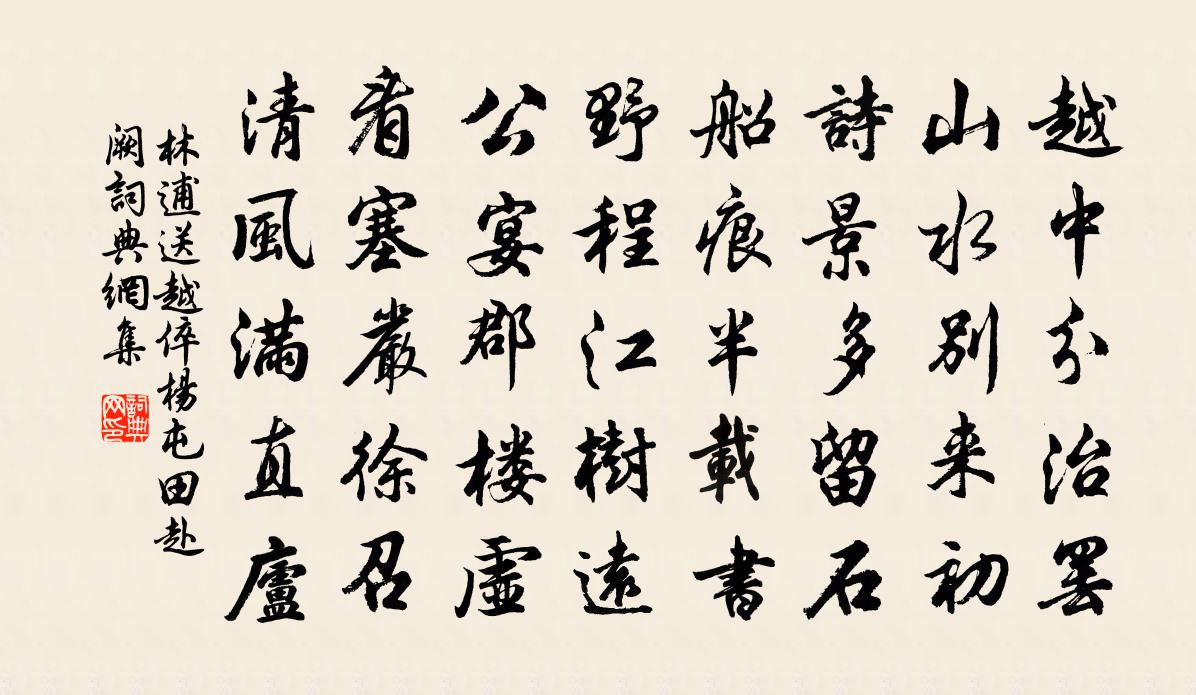 越中分治罢
山水别来初
詩景多留石
船痕半載書
野程江樹遠
公宴郡楼虚
看塞嚴徐召
清風满直廬
林逋送越倅楊屯田赴
闕詞典網集
詞典
网印